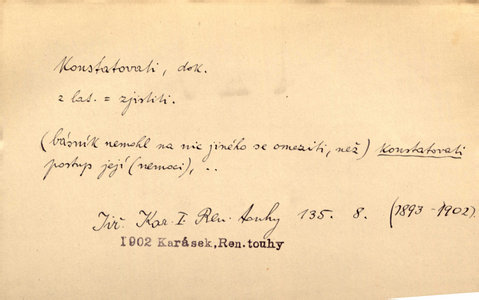 Konstatovati, dok.
z lat. = zjistiti.
(básník nemohl na nic jiného se omeziti, než) konstatovati
postup její (nemoci), ..
Jiř. Kar. I. Ren. touhy 135. 8. (1893-1902).
1902 Karásek, Ren. touhy